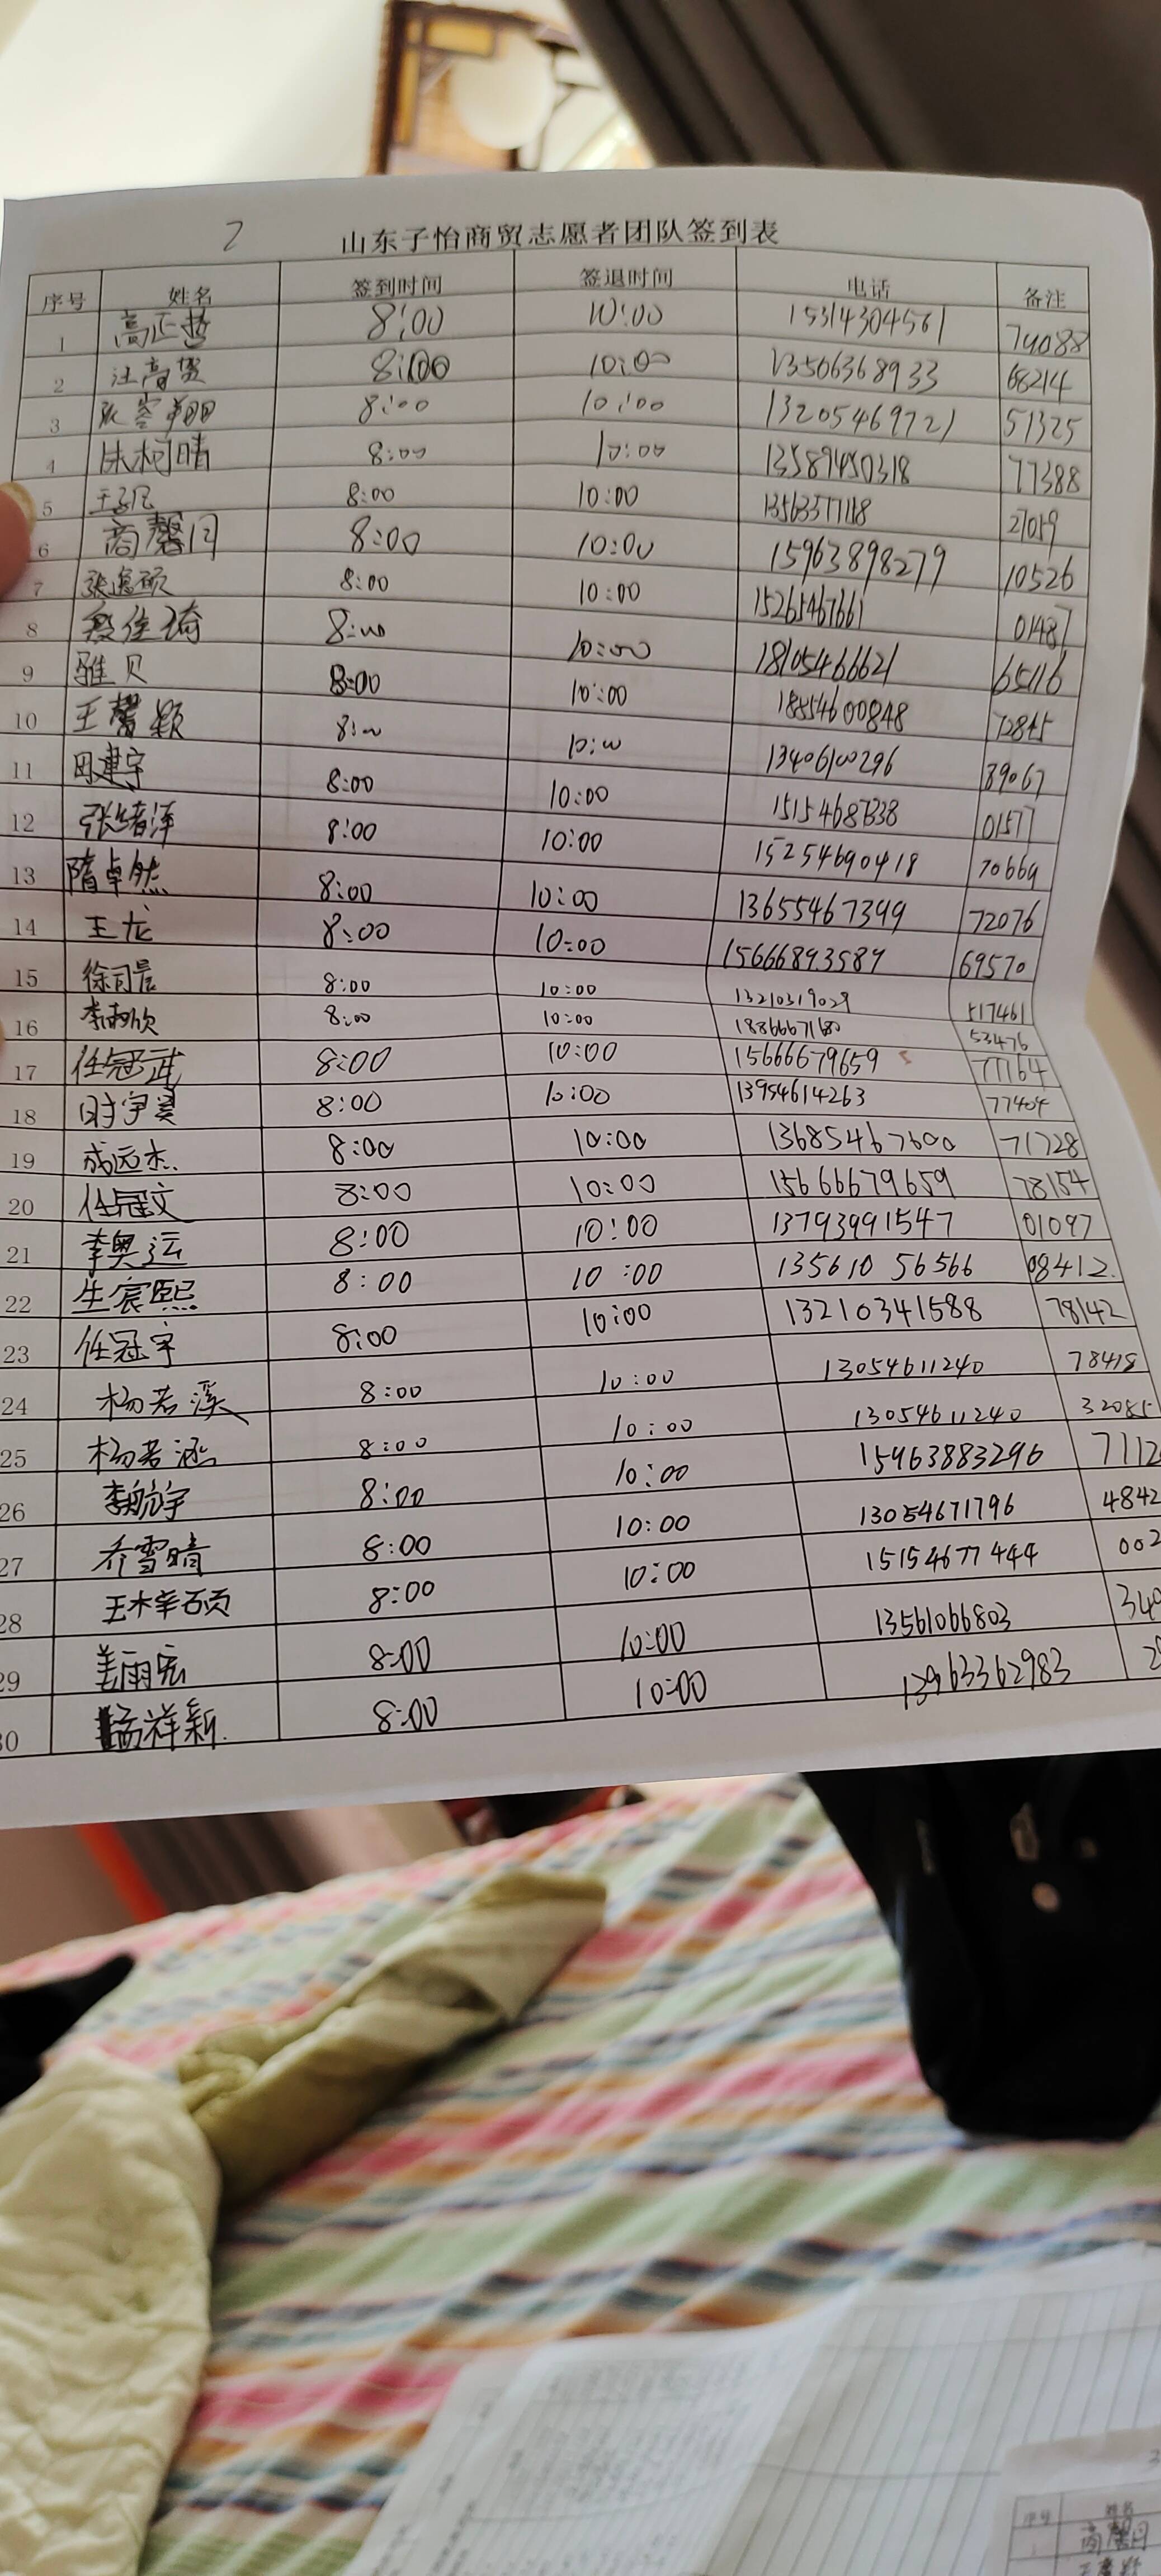 2
山东子怡商贸志愿者团队签到表
序号 姓名 签到时间 签退时间 电话 备注
1 高正哲 8:00 10:00 15314304561 74088
2 汪高贺 8:00 10:00 13506368933 68214
3 8:00 10:00 13205469721 51325
4 朱柯晴 8:00 10:00 13589450318 77388
5 8:00 10:00 27019
6 商馨月 8:00 10:00 15963898279 10526
7 8:00 10:00 15265467661 01487
8 8:00 10:00 18105466621 65116
9 骆贝 8:00 10:00 18854600848 72845
10 王馨颖 8:00 10:00 13406100296 39067
11 田建宇 8:00 10:00 15154687338 01577
12 张绪泽 8:00 10:00 15254690418 70669
13 隋卓然 8:00 10:00 13655467399 72076
14 王龙 8:00 10:00 15666893589 69570
15 徐司晨 8:00 10:00 13210319029 517461
16 李雨欣 8:00 10:00 18866671680 53476
17 任冠武 8:00 10:00 15666679659 77164
18 时宇昊 8:00 10:00 13954614263 77404
19 成远杰 8:00 10:00 13685467600 71728
20 任冠文 8:00 10:00 15666679659 78154
21 李奥运 8:00 10:00 13793991547 01097
22 生宸熙 8:00 10:00 13561056566 08412.
23 任冠宇 8:00 10:00 13210341588 78142
24 杨若溪 8:00 10:00 13054611240 78418
25 杨若涵 8:00 10:00 13054611240 32085
26 李航宇 8:00 10:00 15963883296 7112
27 乔雪晴 8:00 10:00 13054671796 4842
28 王梓硕 8:00 10:00 15154677444 002
29 姜雨宏 8:00 10:00 13561066803 349
30 孟祥新. 8:00 10:00 13963362983 2
序号 姓名
1 商馨月